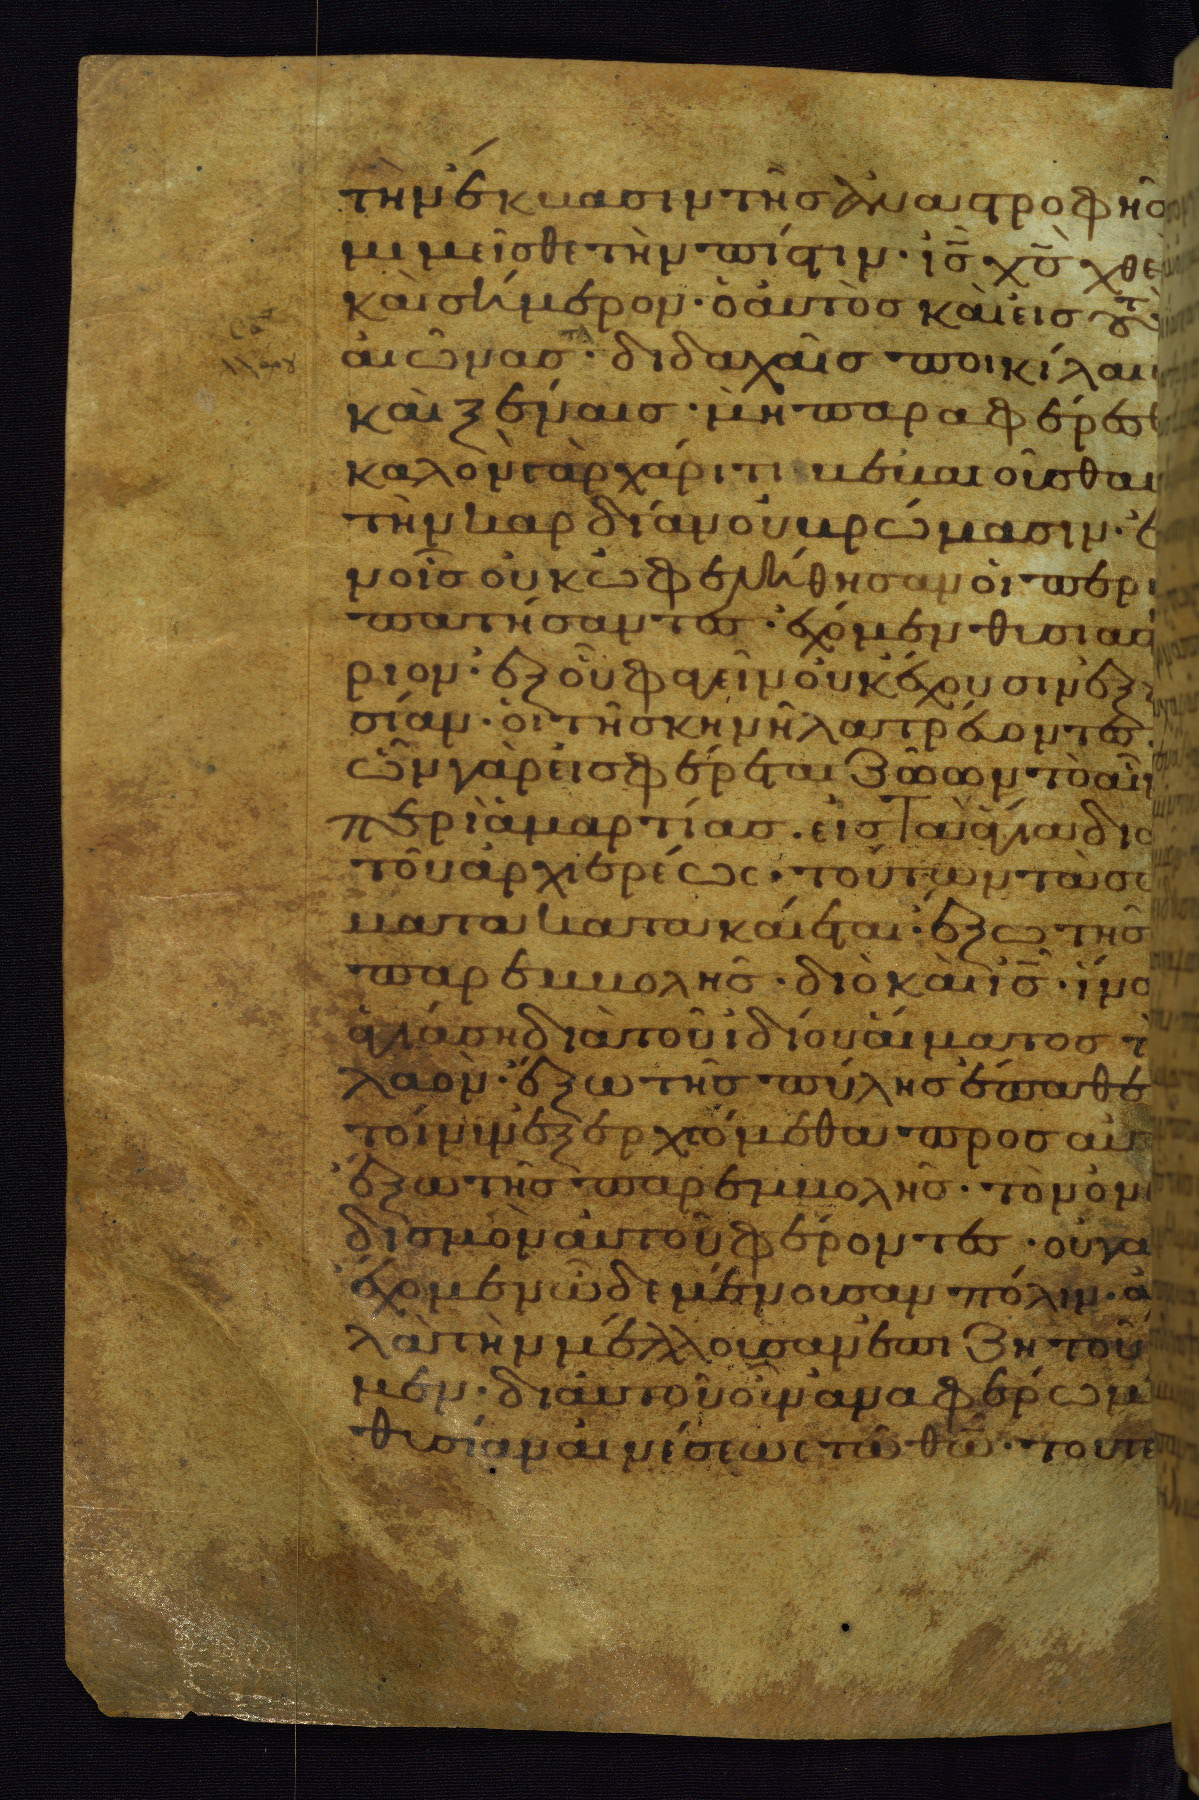 τὴν ἔκβασιν τῆς ἀναστροφῆς
μιμεῖσθε τὴν πίστιν · ἰς̅ χς̅ χθὲ
καὶ σήμερον · ὁ αὐτὸς καὶ εἰς τοὺ
αἰῶνας · διδαχαῖς ποικίλαι
καὶ ξέναις · μὴ παραφέρεσ
καλὸν γὰρ χάριτι βεβαιοῦσθαι
τὴν καρδίαν οὐ βρώμασιν · ἐ
νοῖς οὐκ ὠφελήθησαν οἱ περι
πατήσαντες · ἔχομεν θυσιασ
ριον · ἐξ οὗ φαγεῖν οὐκ ἔχουσιν ἐξ
σίαν · οἱ τῆ σκηνῆ λατρεύοντες
ὧν γὰρ εἰσφέρεται ζώων τὸ αἷ
περὶ ἁμαρτίας · εἰς τὰ ἅγια δι
τοῦ ἀρχιερέως · τούτων τὰ σώ
ματα κατακαίεται · ἔξω τῆς
παρεμβολῆς · διὸ καὶ ἰς̅ · ἵνα
ἁγιάση διὰ τοῦ ἰδίου αἵματος τ
λαὸν · ἔξω τῆς πύλης ἔπαθε
τοίνυν ἐξερχώμεθα προς αὐ
ἔξω τῆς παρεμβολῆς · τὸν ὀνι
δισμὸν αὐτοῦ φέροντες · οὐ γα
ἔχομεν ὧδε μένουσαν πόλιν · ἀ
λὰ τὴν μέλλουσαν ἐπιζητοῦ
μεν · δι αὐτοῦ οὖν ἀναφέρωμ
θυσίαν αἰνέσεως τῶ θω̅ · τουτε